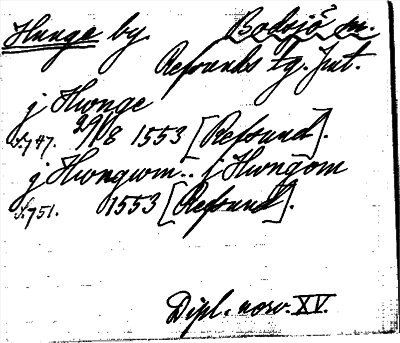 Hunge by. Bodsjö sn.
Refsunds tg. Jmt.
j Hwnge
S. 747. 29/8 1553 [Refsund].
j Hwngwm.. j Hwngom
S. 751. 1553 [Refsund].
Dipl. norv. XV.